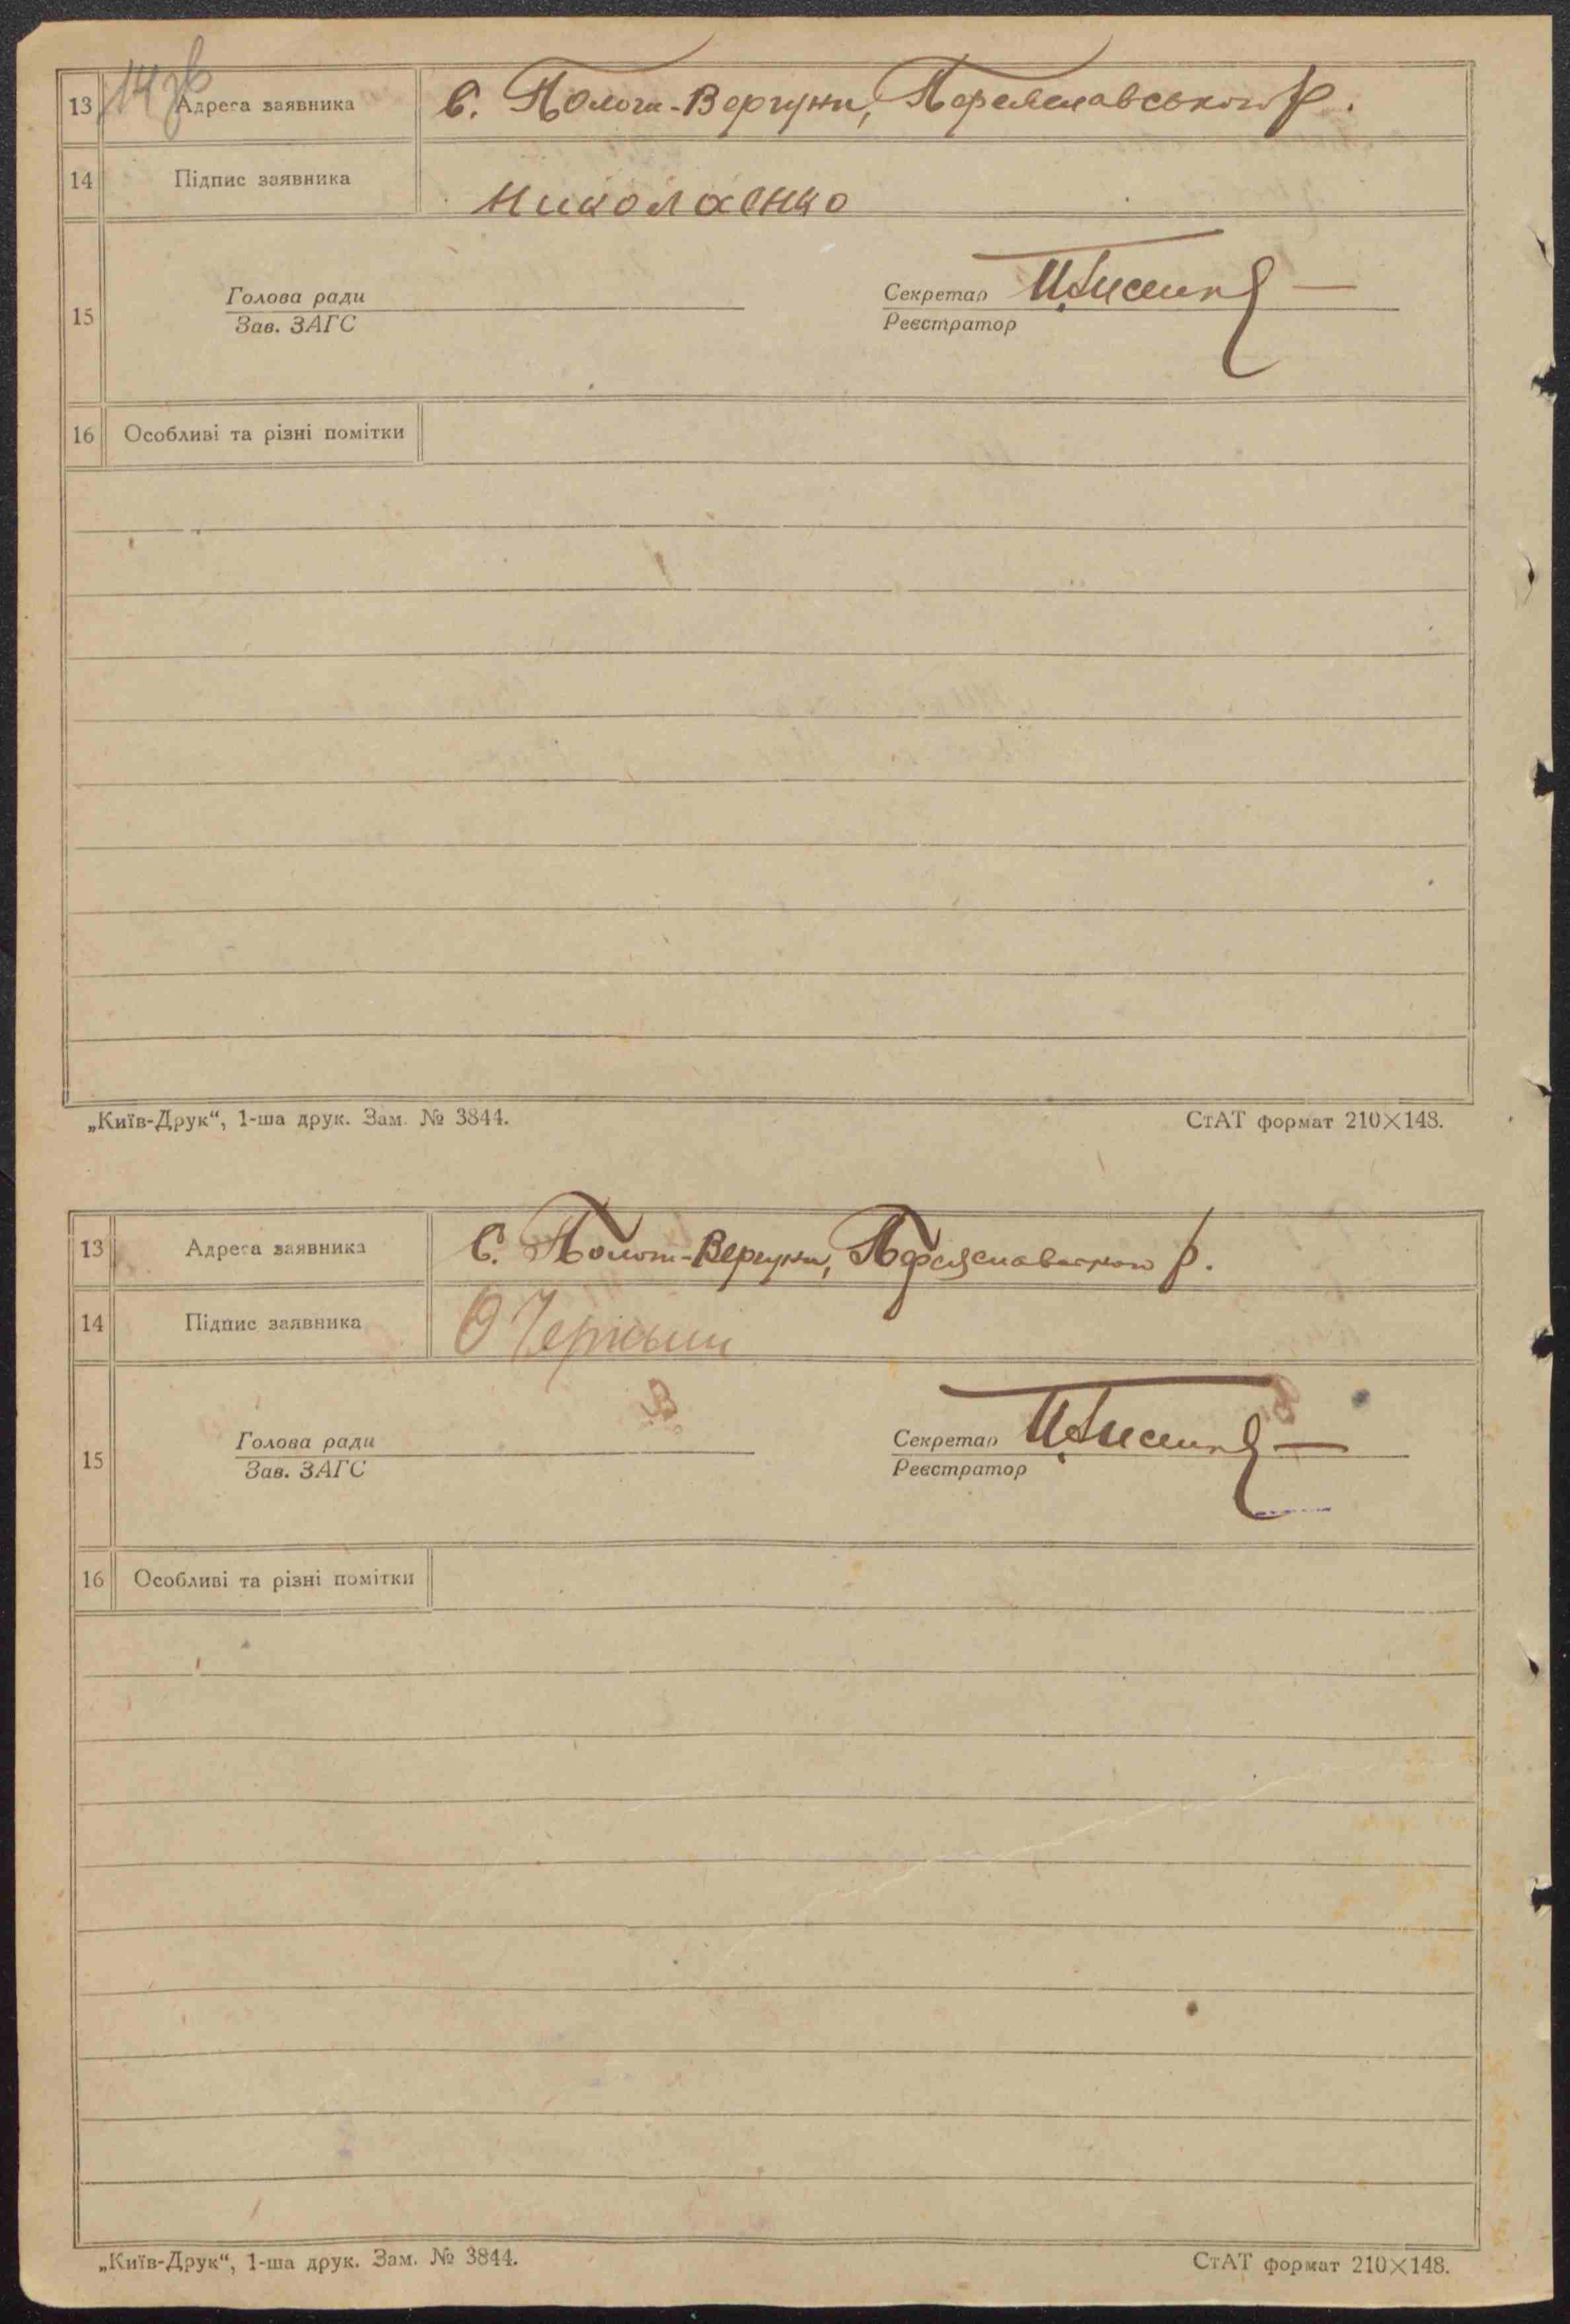 14 зв
13 Адреса заявника С. Пологи-Вергуни, Переяславського р.
14 Підпис заявника Николаенко
15 Голова ради Секретар
Зав. ЗАГС Реєстратор
16 Особливі та різні помітки
„Київ-Друк“, 1-ша друк. Зам. № 3844. СтАТ формат 210×148.
13 Адреса заявника С. Пологи-Вергуни, Переяславського р.
14 Підпис заявника О
15 Голова ради Секретар
Зав. ЗАГС Реєстратор
16 Особливі та різні помітки
„Київ-Друк“, 1-ша друк. Зам. № 3844. СтАТ формат 210×148.